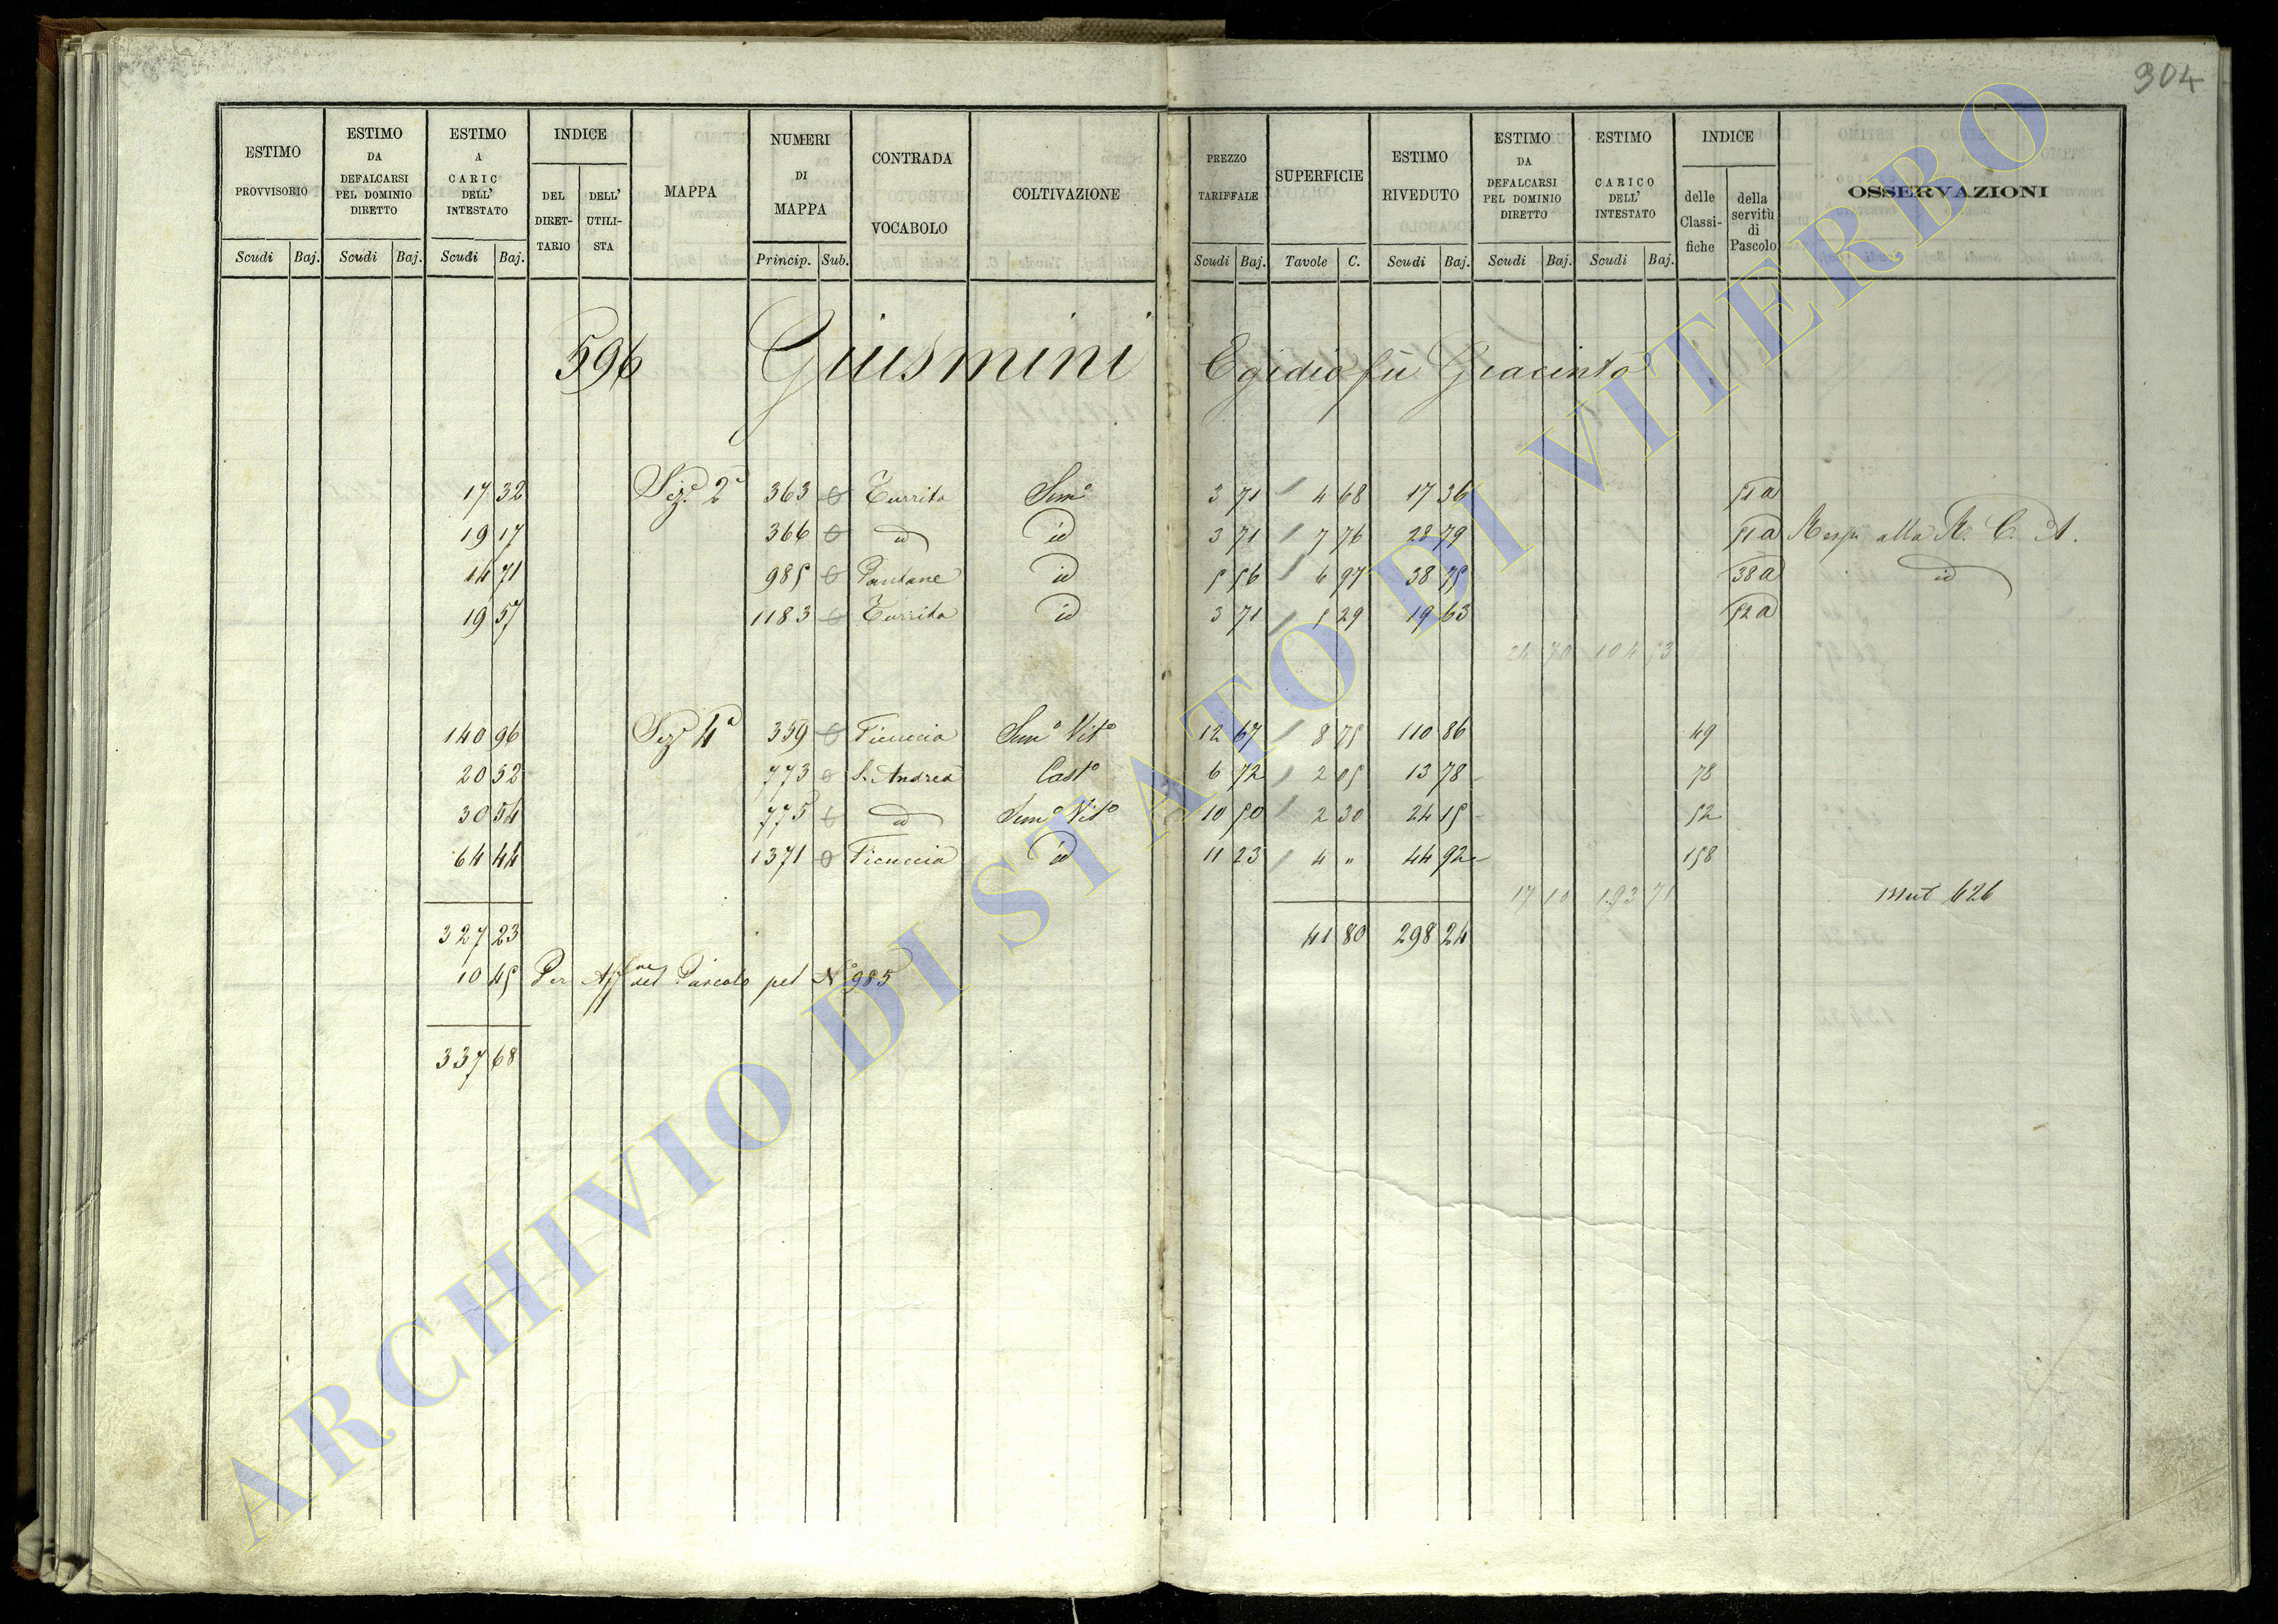 304
ESTIMO PROVVISORIO
Scudi Baj.
ESTIMO DA DEFALCARSI PEL DOMINIO DIRETTO
Scudi Baj.
ESTIMO A CARIC DELL' INTESTATO
Scudi Baj.
INDICE
DEL DIRET- TARIO
DELL' UTILI- STA
MAPPA
NUMERI DI MAPPA
Princip. Sub.
CONTRADA VOCABOLO
COLTIVAZIONE
PREZZO TARIFFALE
Scudi Baj.
SUPERFICIE
Tavole C.
ESTIMO RIVEDUTO
Scudi Baj.
ESTIMO DA DEFALCARSI PEL DOMINIO DIRETTO
Scudi Baj.
ESTIMO CARICO DELL' INTESTATO
Scudi Baj.
INDICE
delle Classi- fiche
della servitù di Pascolo
OSSERVAZIONI
596 Giusmini Egidio fù Giacinto
17 32 Sez.e 2a 363 0 Turrita Sem.o 3 71 4 68 17 36 51 a
19 17 366 0 id id 3 71 7 76 28 79 51 a Resp. alla R. C. A.
14 71 985 0 Pantane id 5 56 6 97 38 75 38 a id
19 57 1183 0 Turrita id 3 71 5 29 19 63 52 a
24 70 104 53
140 96 Sez.e 4a 359 0 Ficuccia Sem.o Vit.o 12 67 8 75 110 86 49
20 52 773 0 S. Andrea Cast.o 6 72 2 05 13 78 78
30 54 775 0 id Sem.o Vit.o 10 50 2 30 24 15 52
64 44 1371 0 Ficuccia id 11 23 4 " 44 92 158
17 10 193 71 Mut 626
327 23 41 80 298 24
10 45 Per Aff.ne del Pascolo pel No 985
337 68
ARCHIVIO DI STATO DI VITERBO